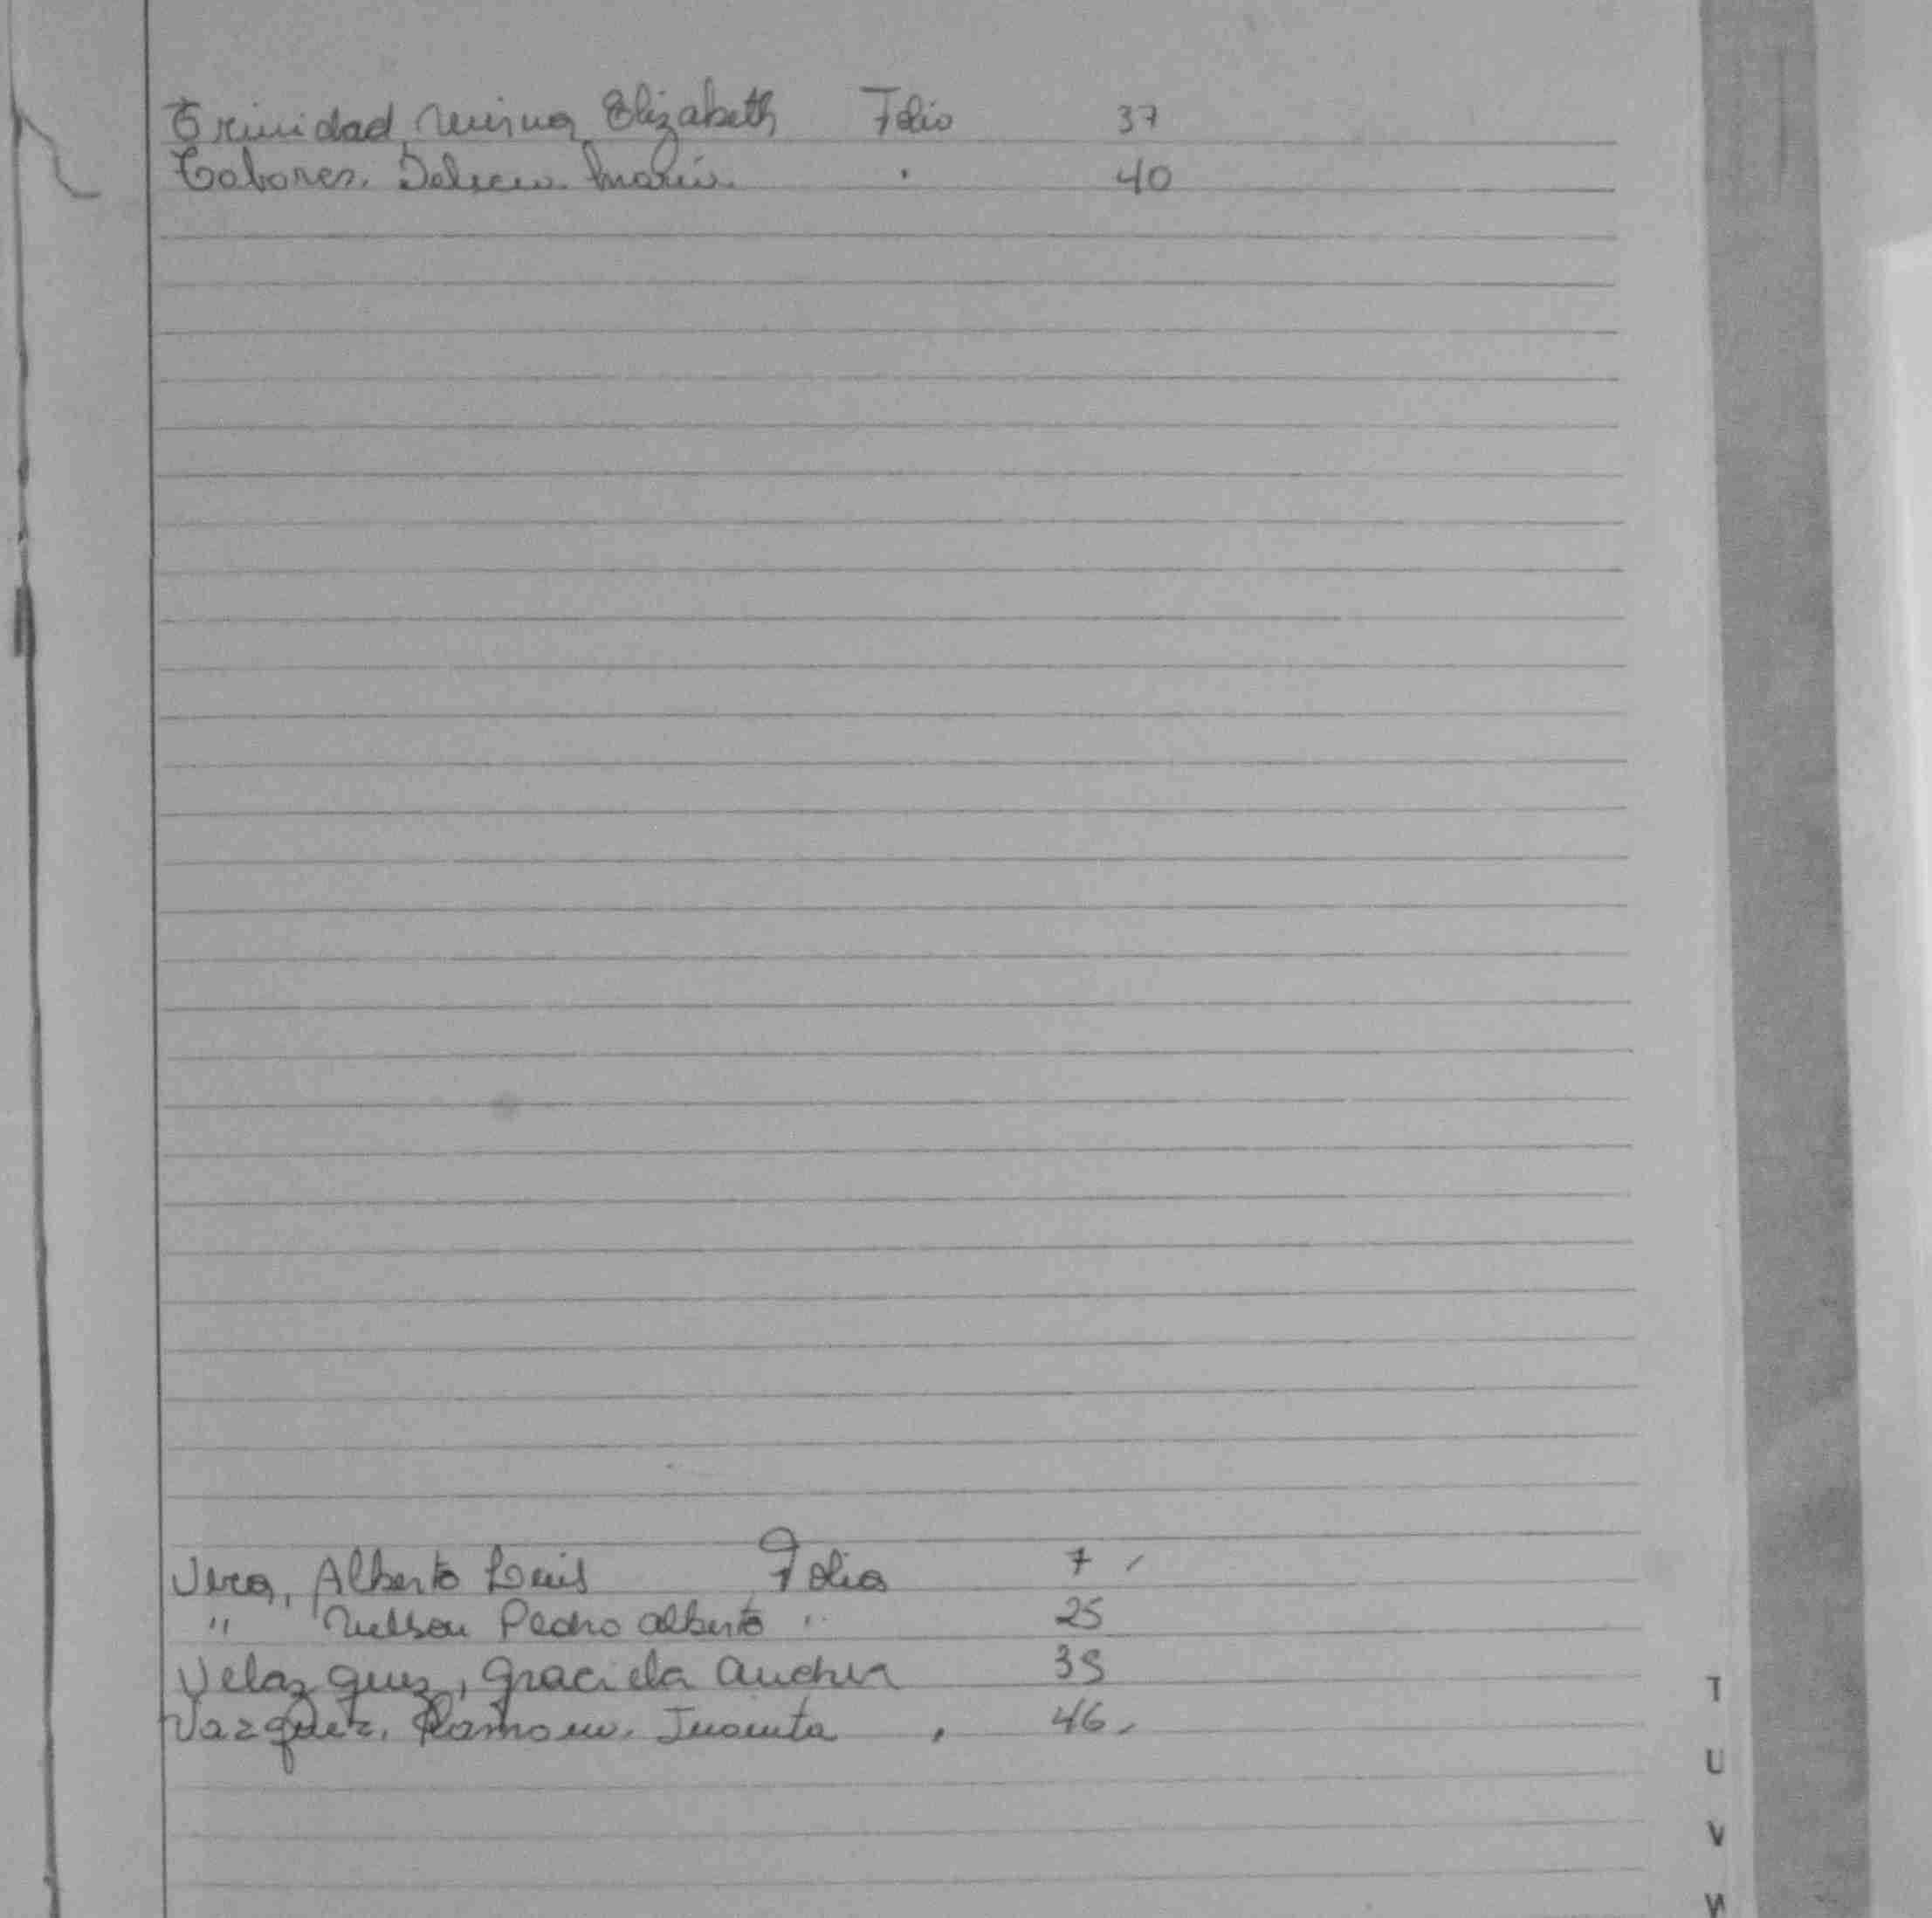 Trinidad, Mirna Elizabeth Folio 37
Tabores. María 40
Vera, Alberto Luis Folio 7
" Nelson Pedro Alberto " 25
Velazquez, Graciela 39
Vazquez, Ramona Juanita 46
T
U
V
W